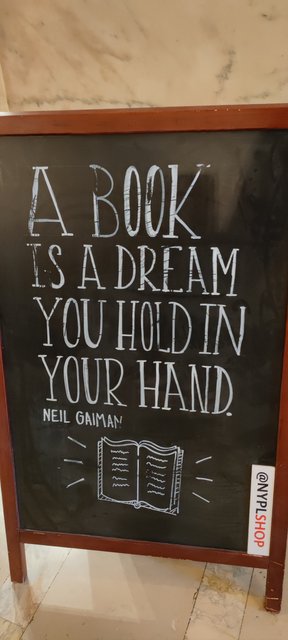 A BOOK
IS A DREAM
YOU HOLD IN
YOUR HAND.
NEIL GAIMAN
@NYPLSHOP